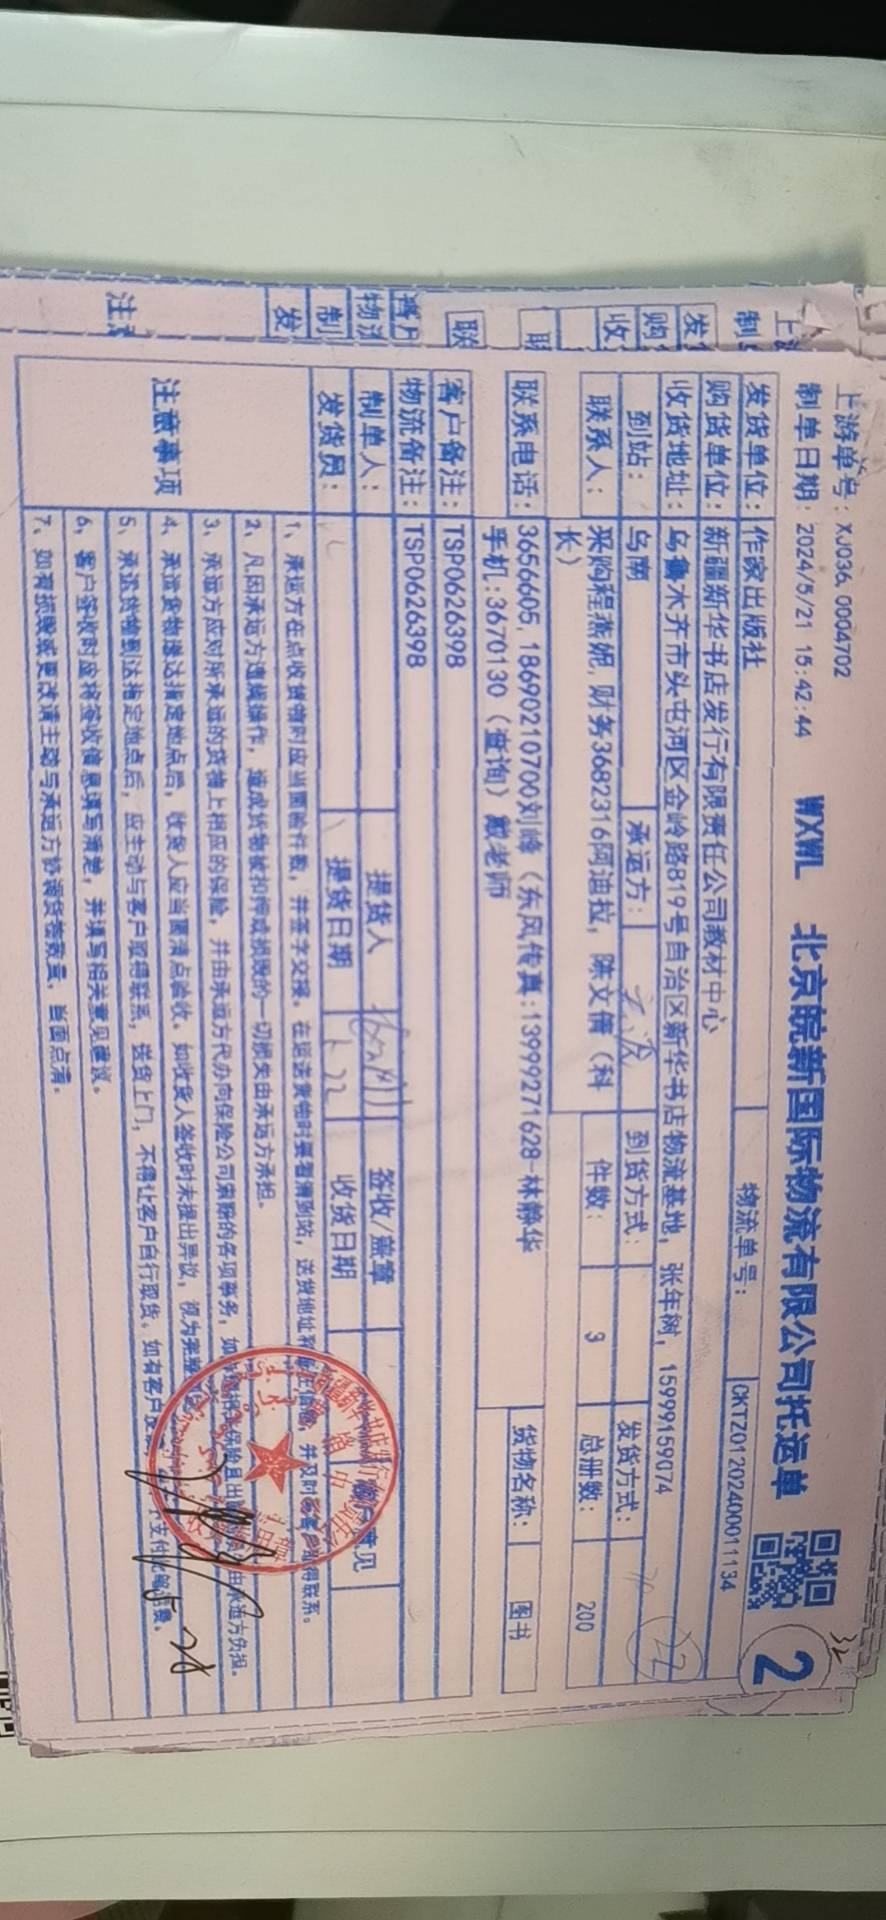 上游单号：XJ036, 0004702
制单日期：2024/5/21 15:42:44 WXWL 北京皖新国际物流有限公司托运单 2
物流单号： CKTZ0120240011134
发货单位：作家出版社
购货单位：新疆新华书店发行有限责任公司教材中心
收货地址：乌鲁木齐市头屯河区金岭路819号自治区新华书店物流基地，张年树，15999159074
到站： 乌南 承运方： 到货方式： 发货方式：
联系人： 采购程燕妮，财务3682316阿迪拉，陈文倩（科长） 件数： 3 总册数： 200
联系电话：3656605, 18690210700刘峰（东风传真：13999271628-林静华 货物名称： 图书
手机：3670130（查询）戴老师
客户备注：TSP0626398
物流备注：TSP0626398
制单人： 提货人 签收/盖章 意见
发货员： 提货日期 收货日期
注意事项
1、承运方在点收货物时应当面验件数，并签字交接。在运送货物时要看清到站，送货地址 并及时 客户取得联系。
2、凡因承运方违规操作，造成货物被扣押或损毁的一切损失由承运方承担。
3、承运方应对所承运的货物上相应的保险，并由承运方代办向保险公司索赔的各项事务，如 承运方负担。
4、承运货物送达指定地点后，收货人应当面清点验收。如收货人签收时未提出异议，视为
5、承运货物到达指定地点后，应主动与客户取得联系，送货上门，不得让客户自行取货。如有客户投 支付此 运费。
6、客户签收时应将签收信息填写清楚，并填写相关意见建议。
7、如有损毁或更改请主动与承运方协调货签数量，当面点清。